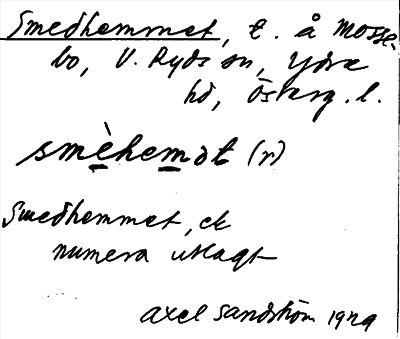 Smedhemmet, t. å Mosse-
bo, V. Ryds sn, Ydre
hd, Österg. l.
smèhemət (r)
Smedhemmet, ck
numera utlagt
Axel Sandström 1929